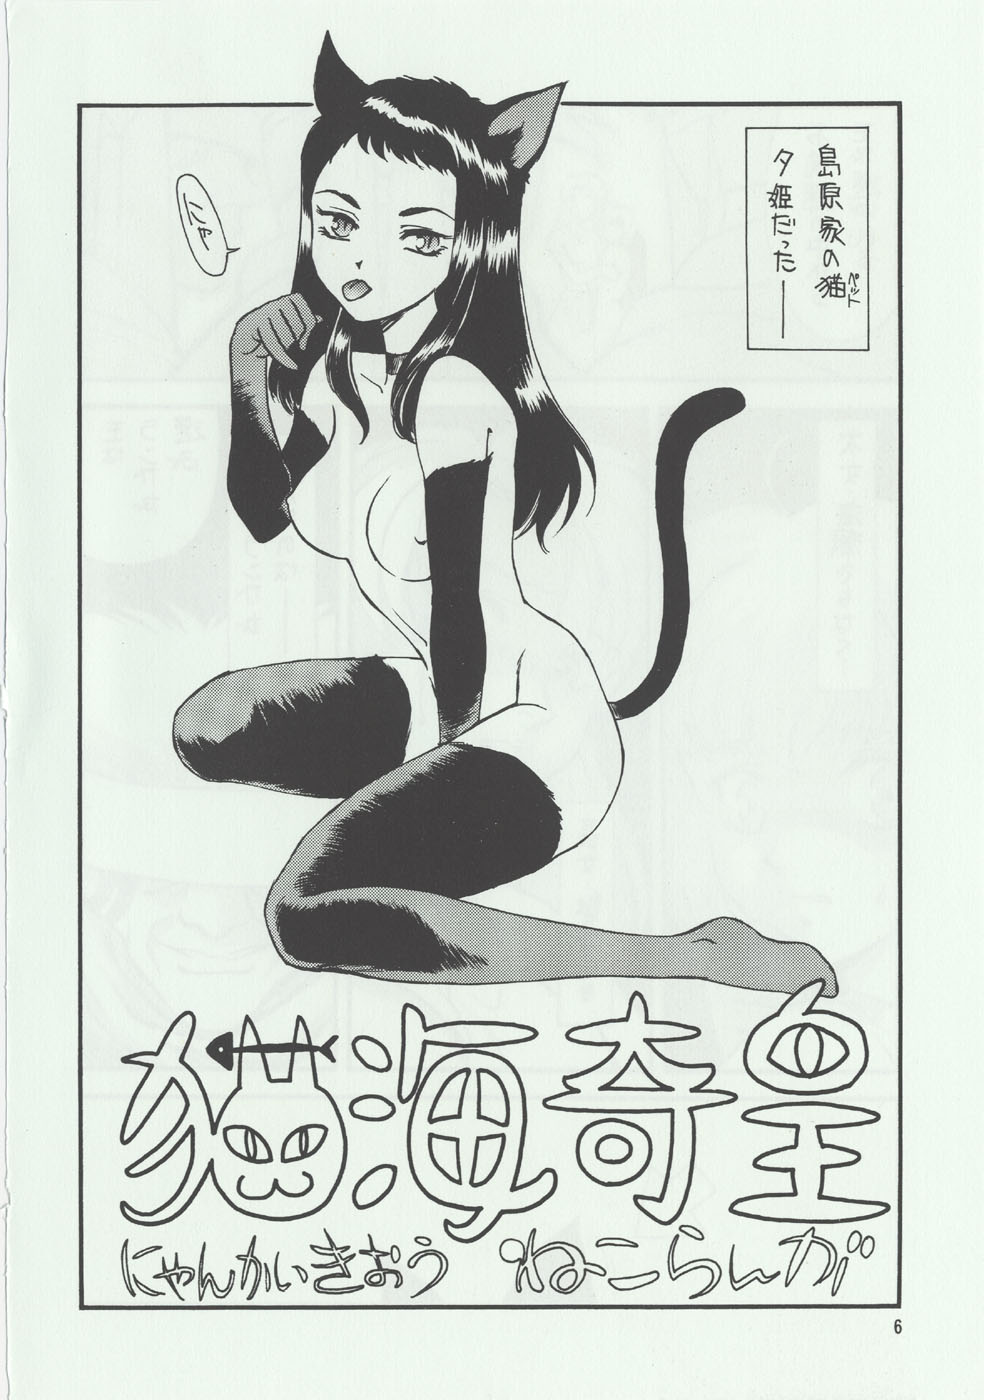 島原家の猫
ペット
夕姫だった──
ニャ
猫海奇皇
にゃんかいきおう ねこらんが
6